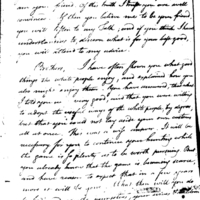 any friend of the truth I hope you are well
If then you believe me to be your friend,
you will listen to my Talk, and if you think I have
endeavoured to discover what is for your help good,
you will attend to my advice.
Brothers, I have often shown you what good
things the white people enjoy, and explained how you
also might enjoy them. You have answered, that what
I told you is very good, and that you were willing
to adopt the useful customs of the white people by degrees,
but that you could not lay aside your own customs
all at once. This was a wise answer. It will be
necessary for you to continue your hunting while
the game is so plenty as to be worth pursuing. But
you already know that the game is becoming scarce,
and have reason to expect that in a few years
more it will be gone. What then will you do